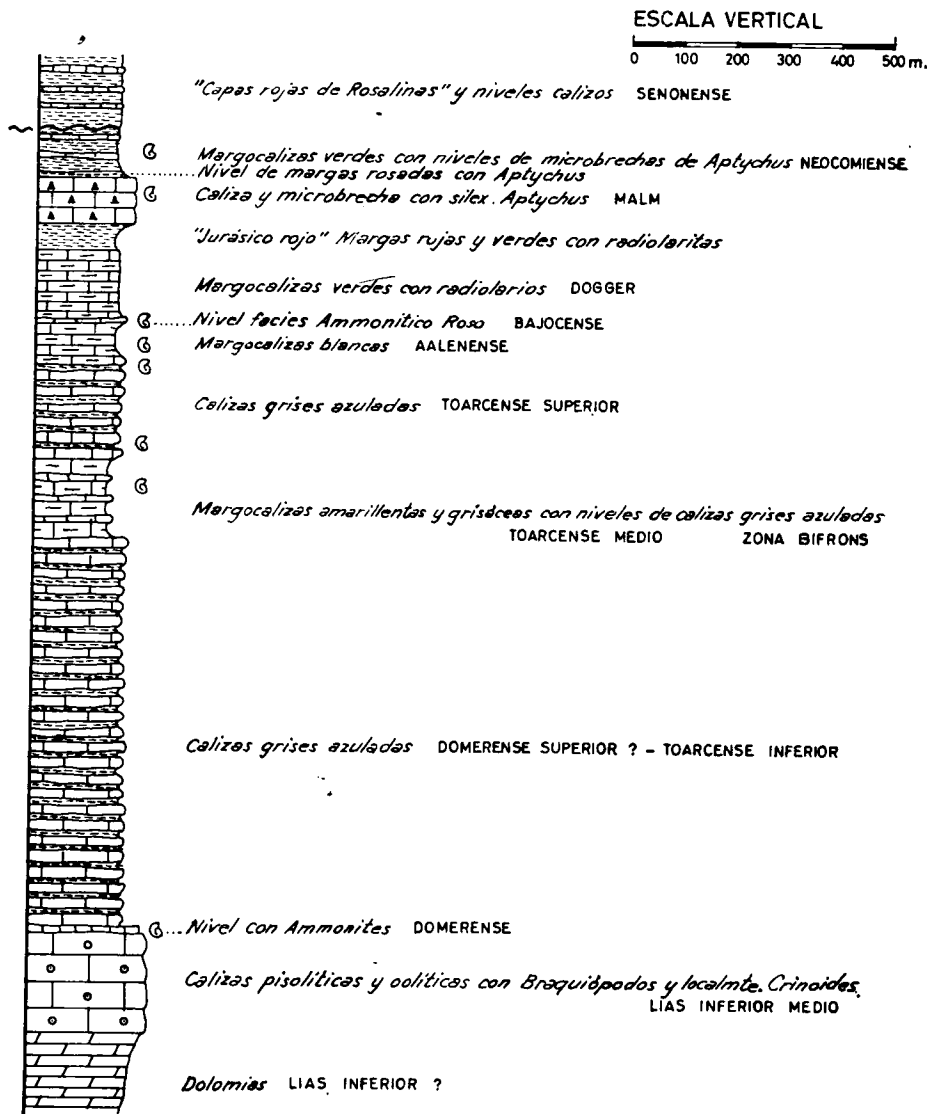 ESCALA VERTICAL
0 100 200 300 400 500 m.
"Capas rojas de Rosalinas" y niveles calizos SENONENSE
Margocalizas verdes con niveles de microbrechas de Aptychus NEOCOMIENSE
Nivel de margas rosadas con Aptychus
Caliza y microbrecha con silex. Aptychus MALM
"Jurásico rojo" Margas rujas y verdes con radiolaritas
Margocalizas verdes con radiolarios DOGGER
Nivel facies Ammonitico Roso BAJOCENSE
Margocalizas blancas AALENENSE
Calizas grises azuladas TOARCENSE SUPERIOR
Margocalizas amarillentas y grisáceas con niveles de calizas grises azuladas
TOARCENSE MEDIO ZONA BIFRONS
Calizas grises azuladas DOMERENSE SUPERIOR ? - TOARCENSE INFERIOR
Nivel con Ammonites DOMERENSE
Calizas pisolíticas y oolíticas con Braquiópodos y localmte. Crinoides.
LIAS INFERIOR MEDIO
Dolomias LIAS INFERIOR ?